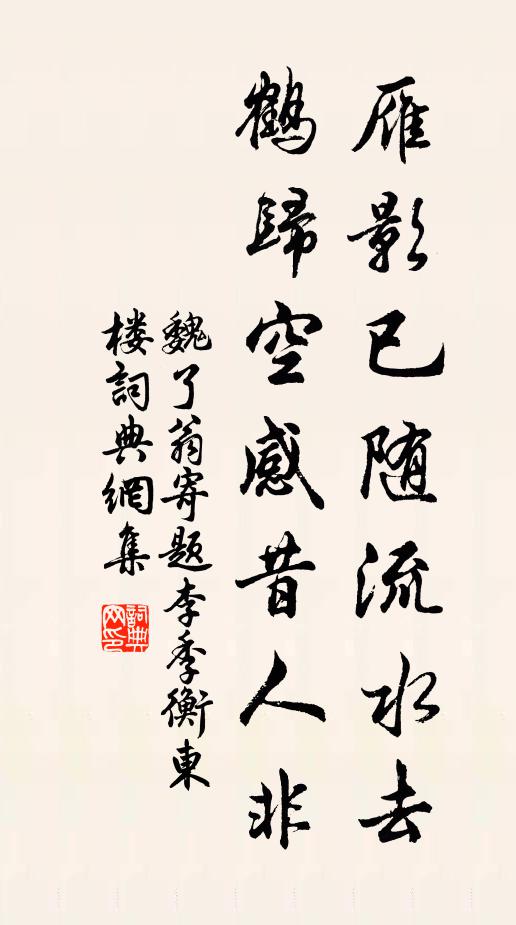 雁影已随流水去
鶴歸空感昔人非
魏了翁寄題李季衡東
楼詞典網集
詞典
网印